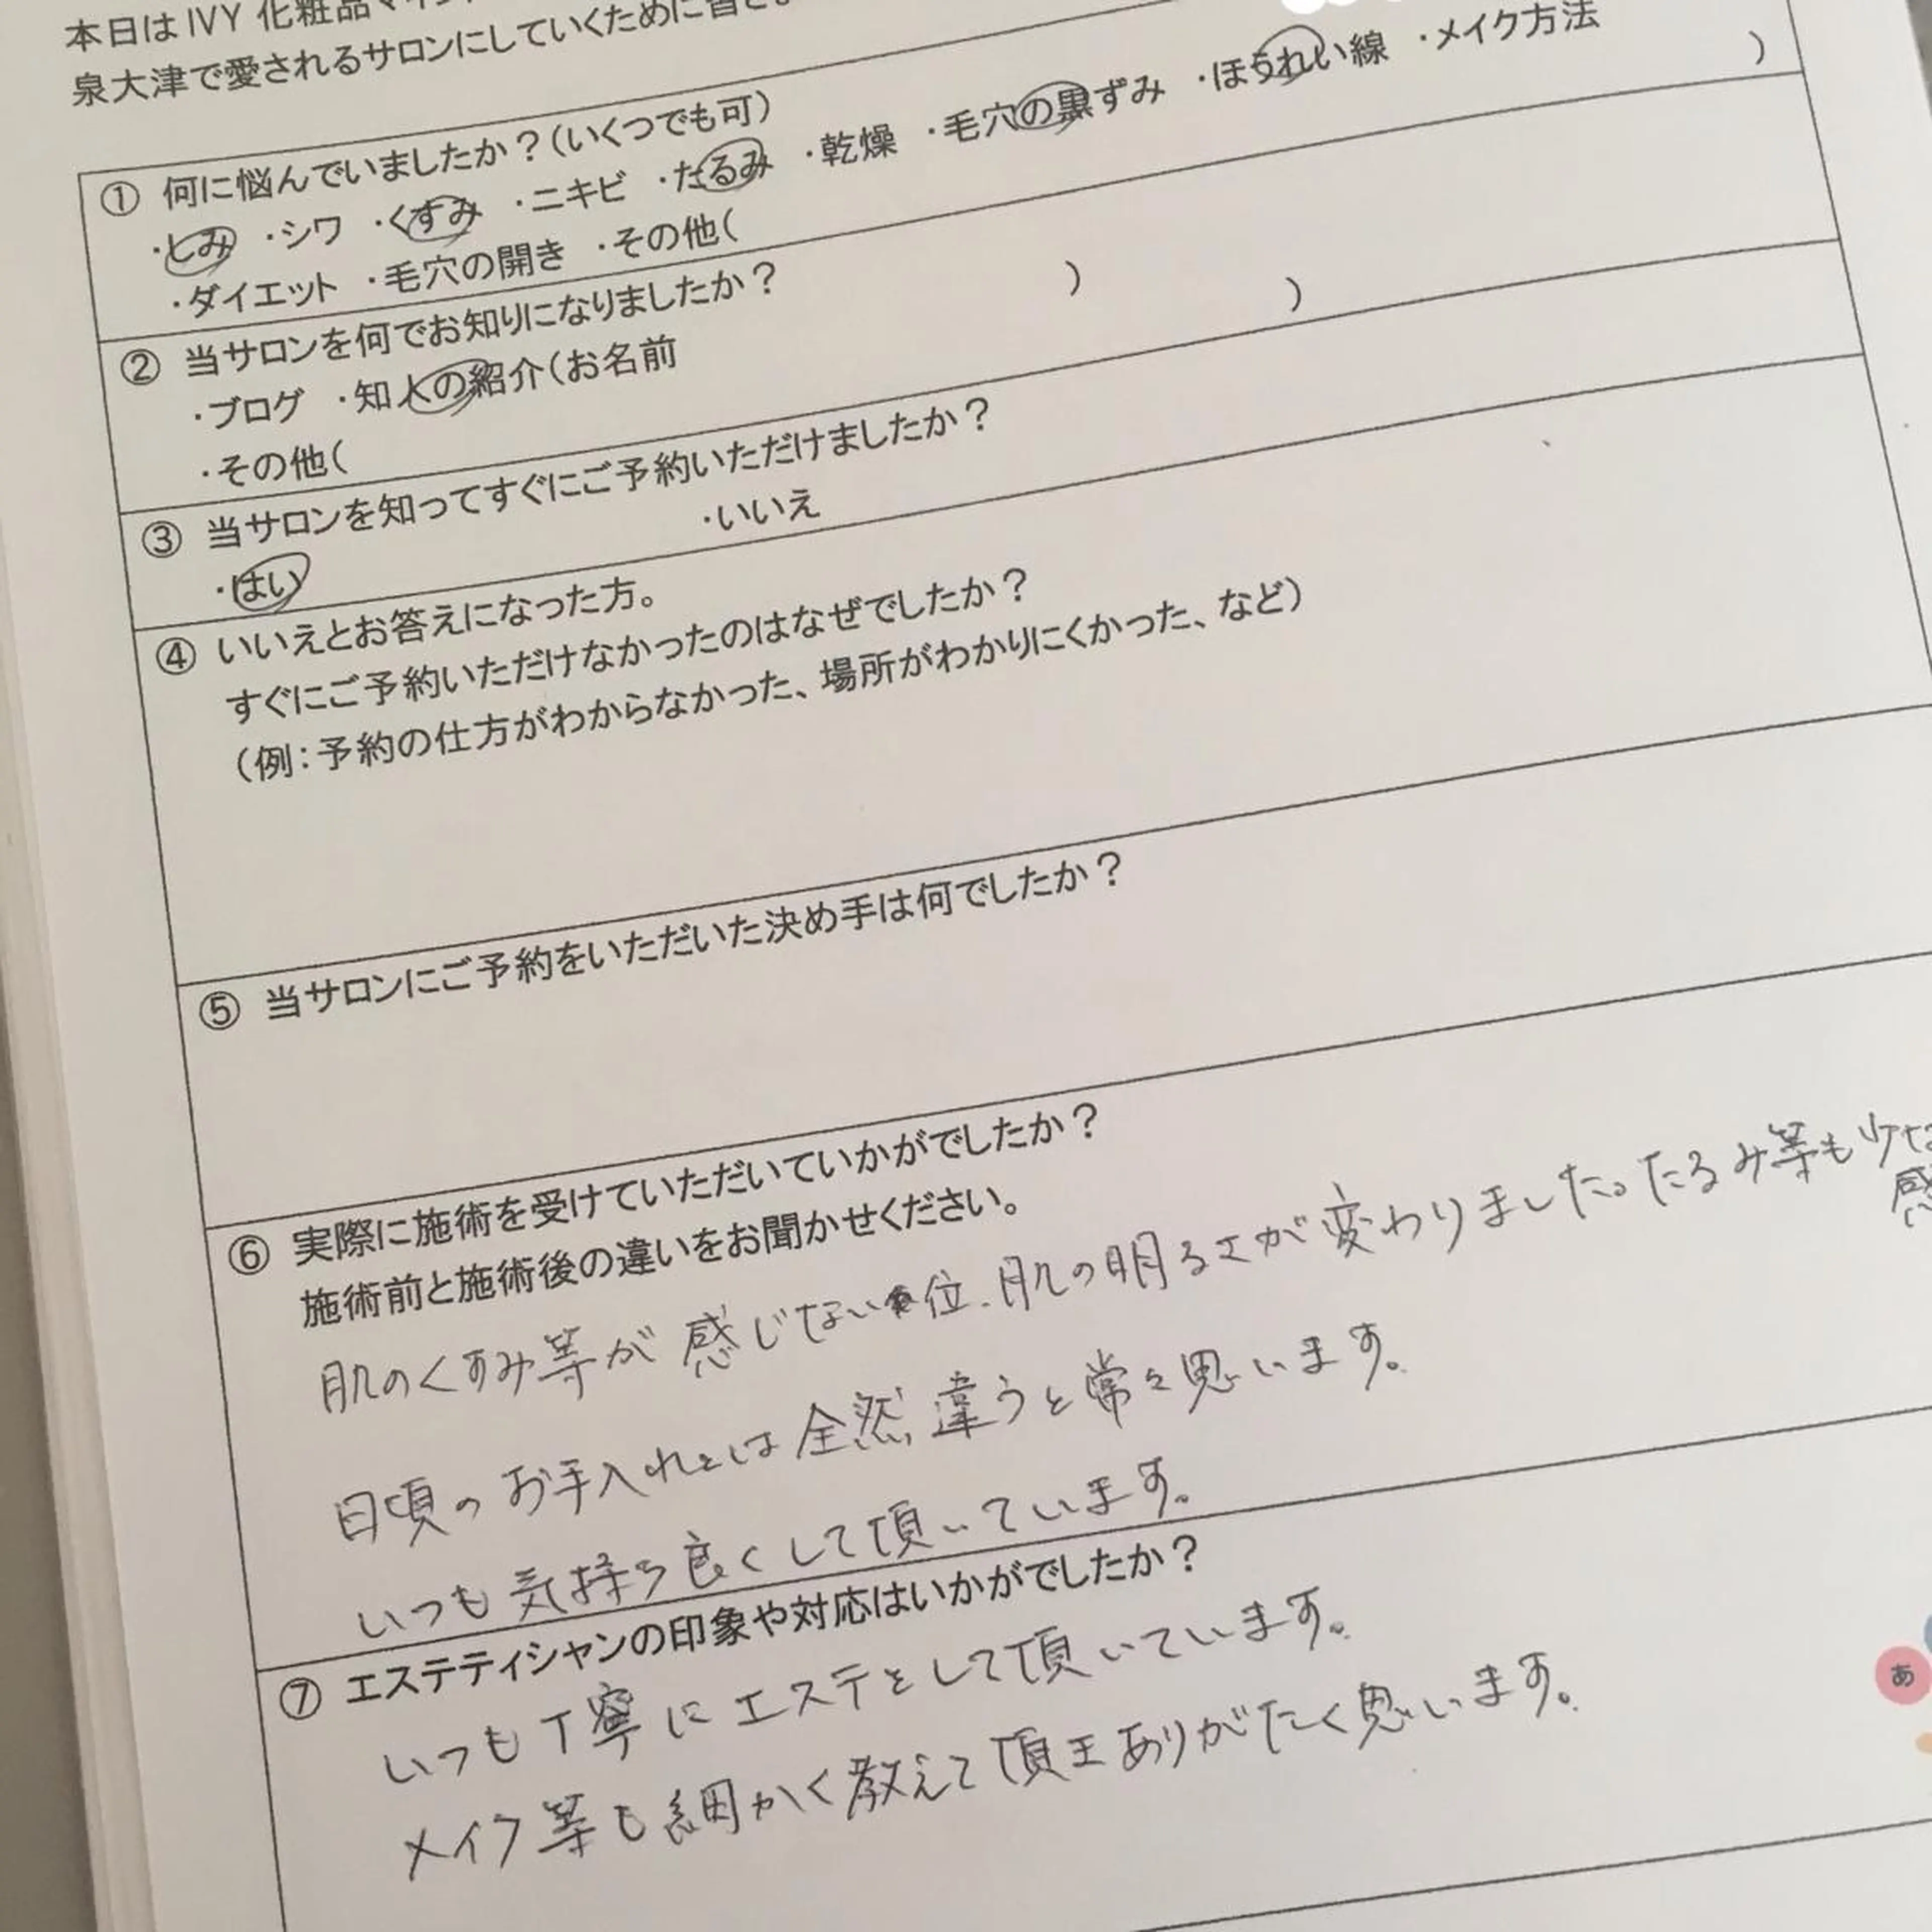 本日は IVY 化粧品マイン
泉大津で愛されるサロンにしていくために皆さ
① 何に悩んでいましたか？(いくつでも可)
・しみ ・シワ ・くすみ ・ニキビ ・たるみ ・乾燥 ・毛穴の黒ずみ ・ほうれい線 ・メイク方法
・ダイエット ・毛穴の開き ・その他( )
② 当サロンを何でお知りになりましたか？
・ブログ ・知人の紹介(お名前 )
・その他( )
③ 当サロンを知ってすぐにご予約いただけましたか？
・はい ・いいえ
④ いいえとお答えになった方。
すぐにご予約いただけなかったのはなぜでしたか？
(例：予約の仕方がわからなかった、場所がわかりにくかった、など)
⑤ 当サロンにご予約をいただいた決め手は何でしたか？
⑥ 実際に施術を受けていただいていかがでしたか？
施術前と施術後の違いをお聞かせください。
肌のくすみ等が感じない位、肌の明るさが変わりました。たるみ等も少な
感
日頃のお手入れとは全然違うと常々思います。
いつも気持ち良くして頂いています。
⑦ エステティシャンの印象や対応はいかがでしたか？
いつも丁寧にエステをして頂いています。
メイク等も細かく教えて頂きありがたく思います。
あ